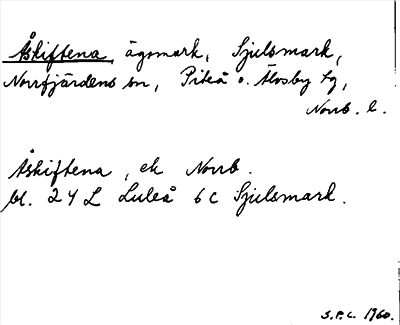 Åskiftena, ägomark, Sjulsmark,
Norrfjärdens sn, Piteå o. Älvsby tg,
Norrb. l.
Åskiftena, ek Norrb.
bl. 24 L Luleå 6 c Sjulsmark.
S.P.C. 1960.